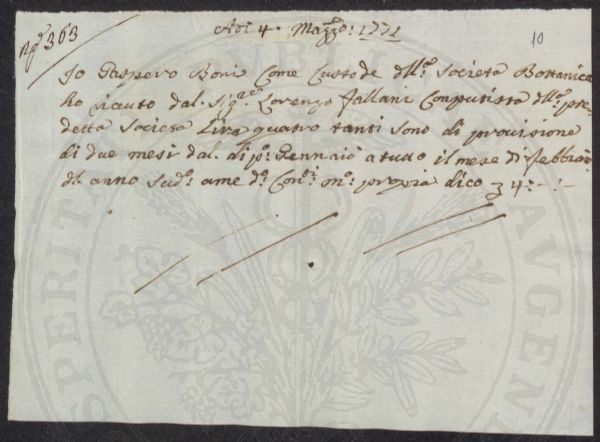 Adi 4. Marzo: 1771
N.° 363
10
Io Gaspero Boni Come Custode dll.ª Società Bottanica
ho ricauto dal. Sig.re Lorenzo Fallani Computista dll.ª pre-
detta Società Lire quatro tanti sono di provisione
di due mesi dal. di p.º Gennaio a tutto il mese di Febbraio
d.º anno sud.º a me d.º Con.ti m.º propria dico 4.-.-